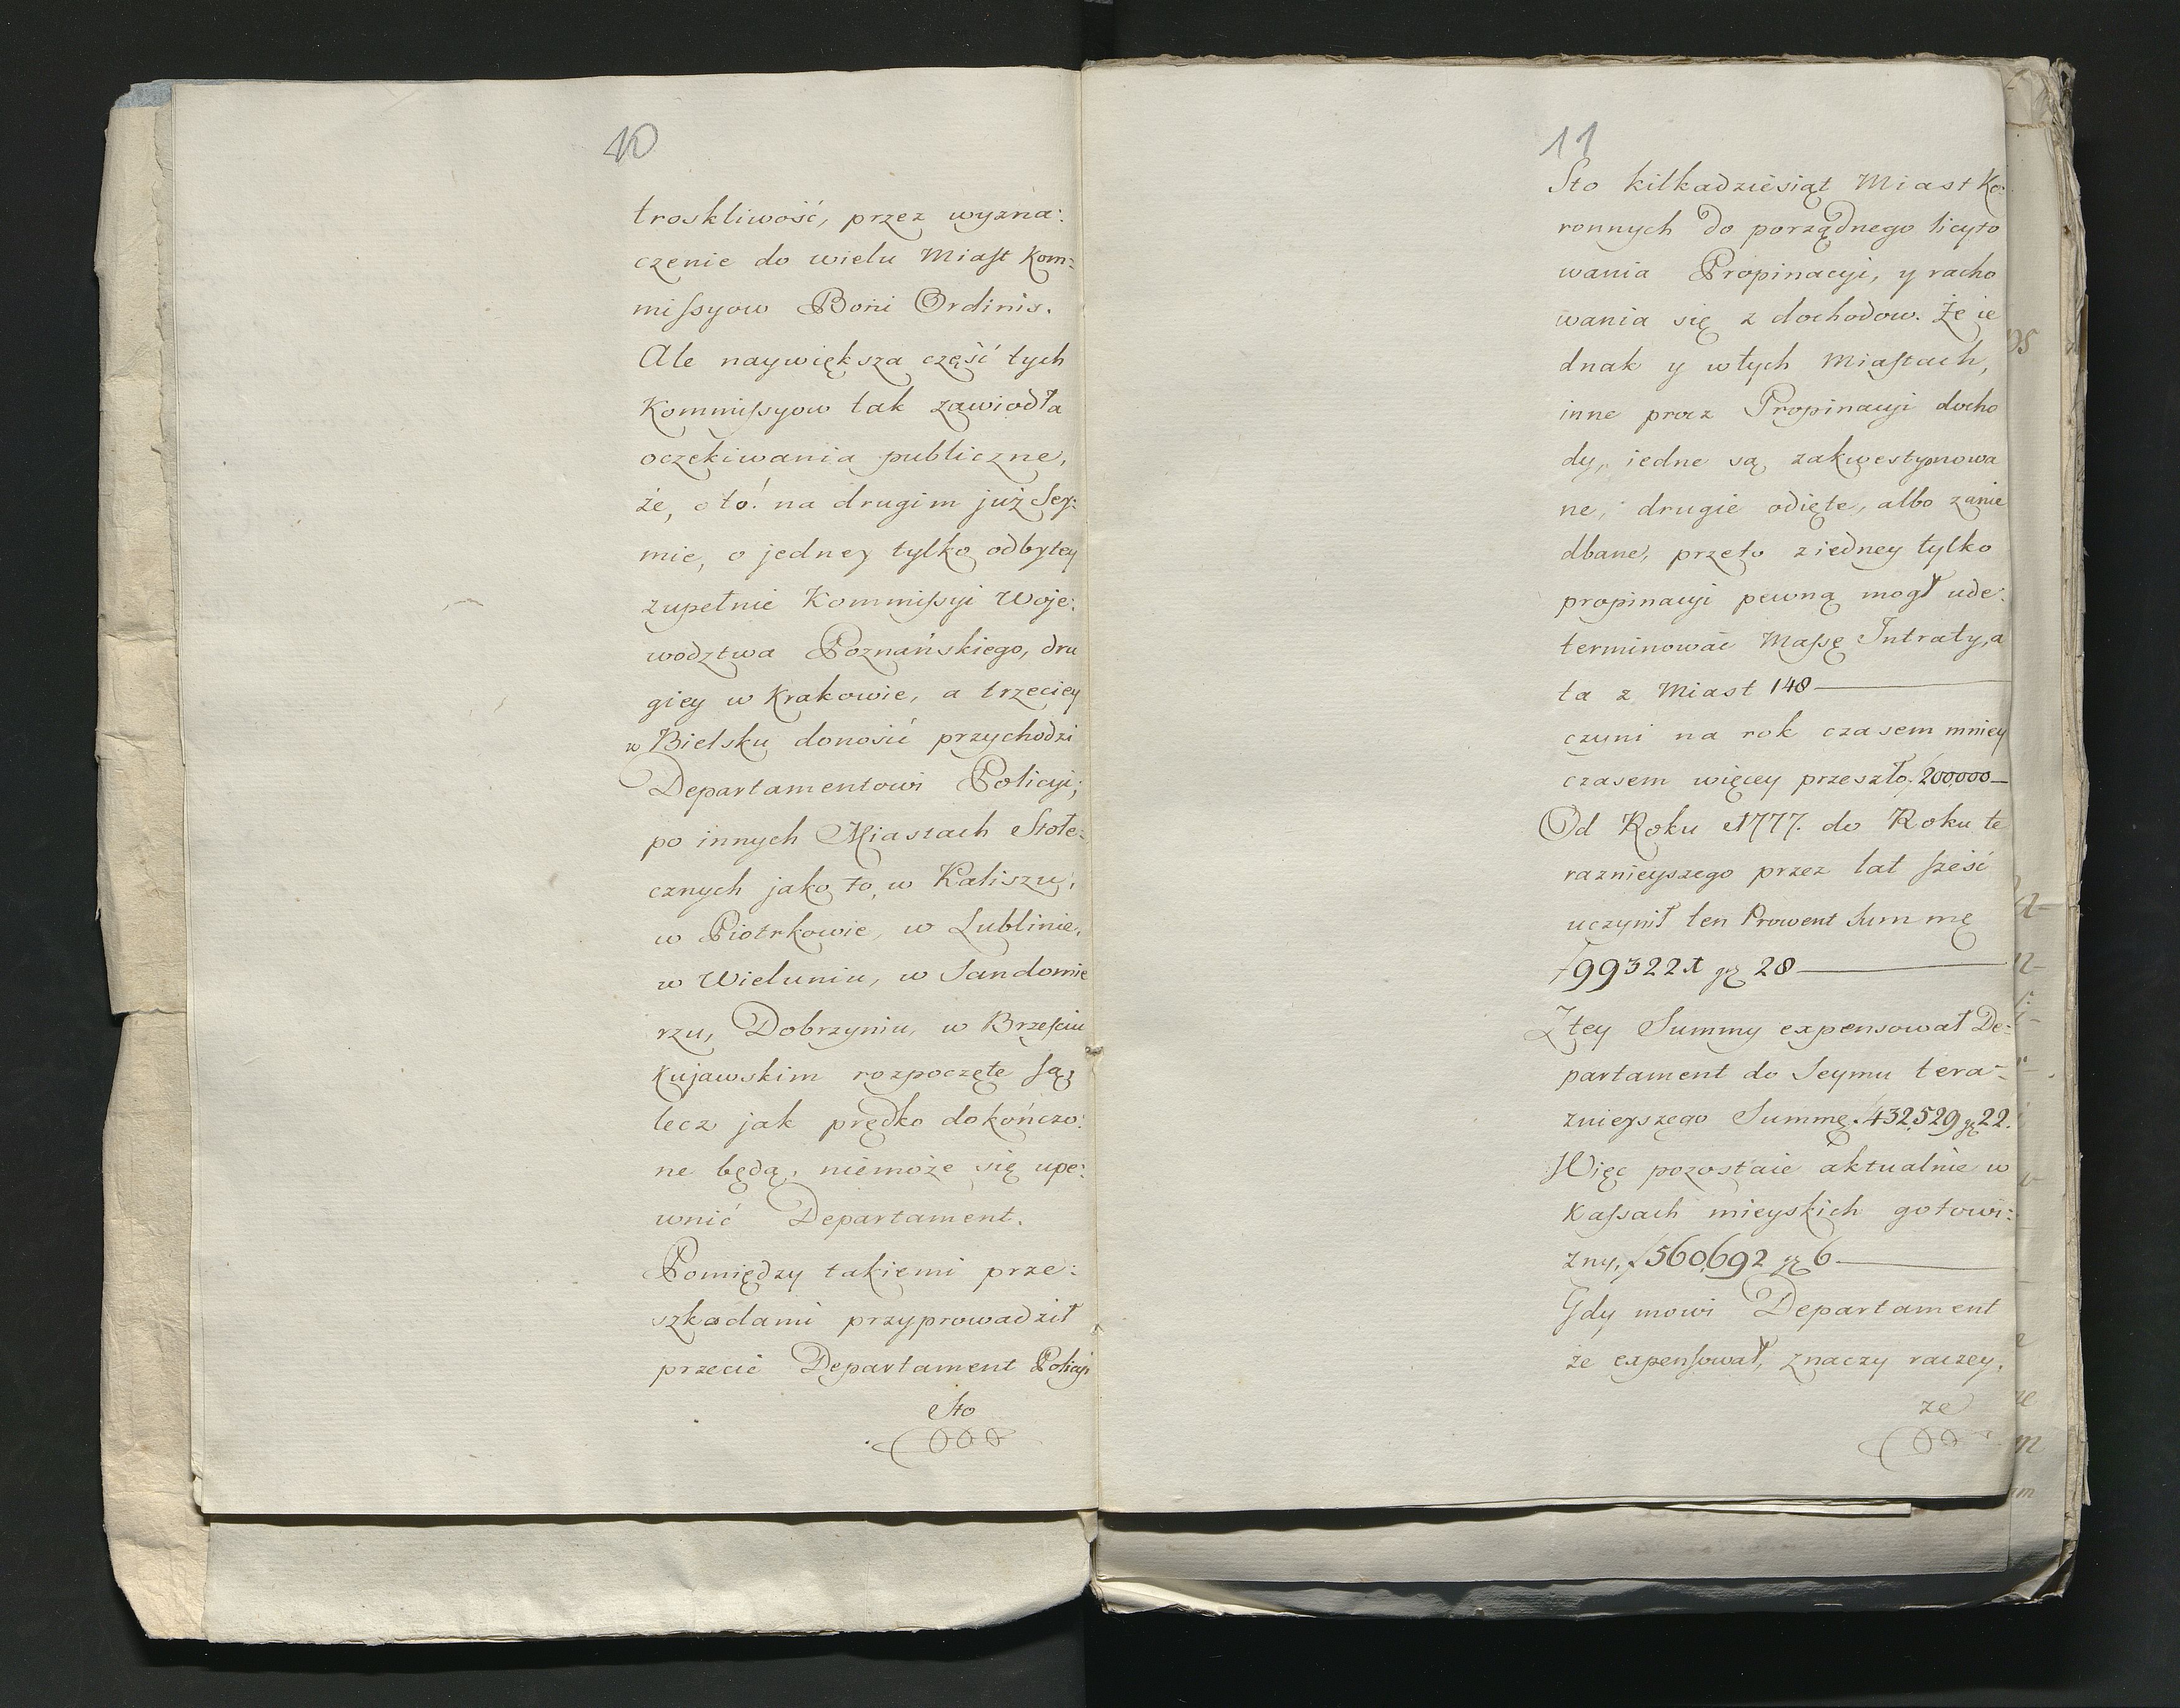 10
troskliwość, przez wyzna:
czenie do wielu Miaſt Kom:
miſsyow Boni Ordinis.
Ale naywiększa część tych
Kommiſsyow tak zawiodła
oczekiwania publiczne,
że, oto! na drugim już Sey:
mie, o jedney tylko odbytey
zupełnie Kommiſsyi Woje:
wodztwa Poznańskiego, dru
giey w Krakowie, a trzeciey
w Bielsku donosić przychodzi
Departamentowi Policyi;
po innych Miastach Stołe:
cznych jako to, w Kaliszu,
w Piotrkowie, w Lublinie,
w Wieluniu, w Sandomie
rzu, Dobrzyniu, w Brzeſciu
Kujawskim rozpoczęte ſą;
lecz jak prędko dokończo:
ne będą, niemoże się upe:
wnić Departament.
Pomiędzy takiemi prze:
szkodami przyprowadził
przecie Departament Policyi
Sto
11
Sto kilkadziesiąt Miast Ko:
ronnych do porządnego licyto
wania Propinacyi, y racho
wania się z dochodow. Że ie
dnak y wtych Miaſtach,
inne procz Propinacyi docho
dy, iedne są zakwestyonowa
ne, drugie odięte, albo zanie
dbane, przeto z iedney tylko
propinacyi pewną mogł ude:
terminować Maſsę Intraty, a
ta z Miast 148
czyni na rok czasem mniey
czasem więcey przeszło f 200,000
Od Roku 1777. do Roku te
raznieyszego przez lat ſześć
uczynił ten Prowent Summę
f 993221 gr 28
Z tey Summy expensował De:
partament do Seymu tera:
znieyszego Summę f 432,529 gr 22.
Więc pozostaie aktualnie w
Kaſsach mieyskich gotowi:
zny, f 560,692 gr 6
Gdy mowi Departament
że expenſował, znaczy raczey,
że